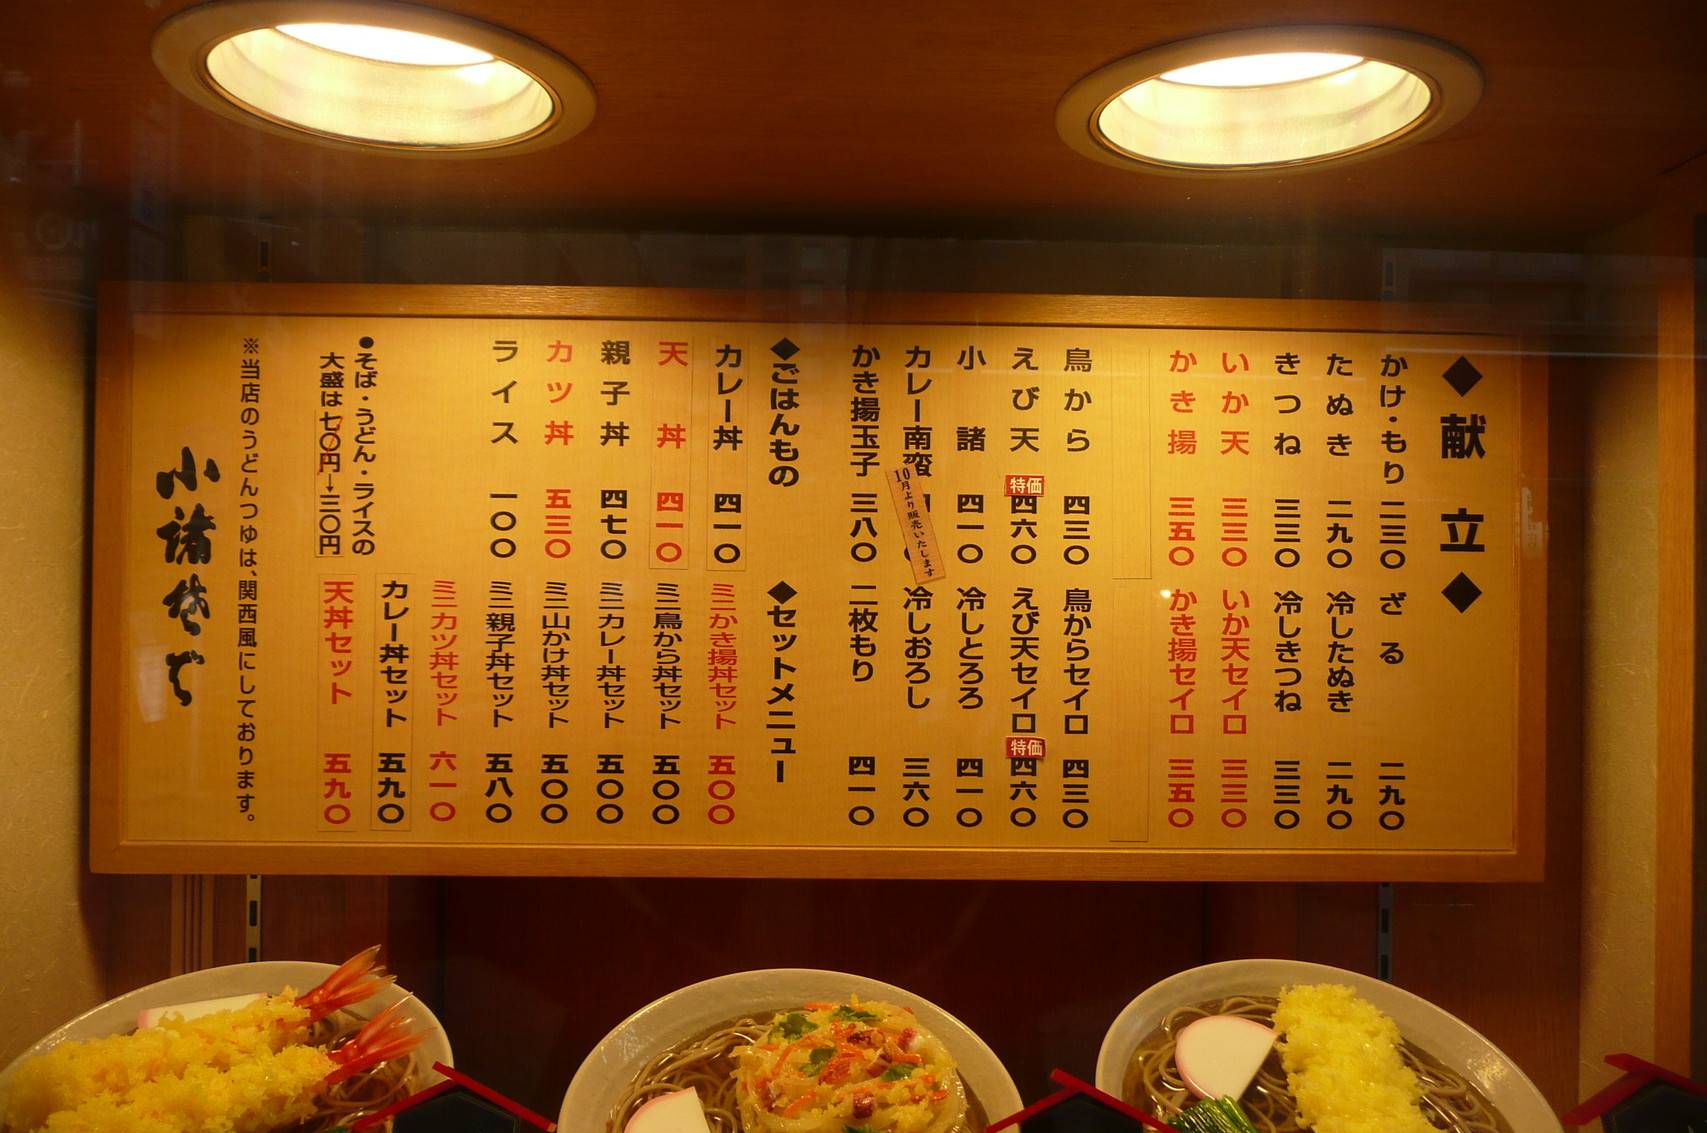 ◆献立◆
かけ・もり 二三〇
ざる 二九〇
たぬき 二九〇
冷したぬき 二九〇
きつね 三三〇
冷しきつね 三三〇
いか天 三三〇
いか天セイロ 三三〇
かき揚 三五〇
かき揚セイロ 三五〇
鳥から 四三〇
鳥からセイロ 四三〇
えび天 特価 四六〇
えび天セイロ 特価 四六〇
小諸 四一〇
冷しとろろ 四一〇
カレー南蛮
10月より販売いたします
冷しおろし 三六〇
かき揚玉子 三八〇
二枚もり 四一〇
◆ごはんもの
カレー丼 四一〇
天丼 四一〇
親子丼 四七〇
カツ丼 五三〇
ライス 一〇〇
◆セットメニュー
ミニかき揚丼セット 五〇〇
ミニ鳥から丼セット 五〇〇
ミニカレー丼セット 五〇〇
ミニ山かけ丼セット 五〇〇
ミニ親子丼セット 五八〇
ミニカツ丼セット 六一〇
カレー丼セット 五九〇
天丼セット 五九〇
●そば・うどん・ライスの
大盛は七〇円→三〇円
※当店のうどんつゆは、関西風にしております。
小諸そば